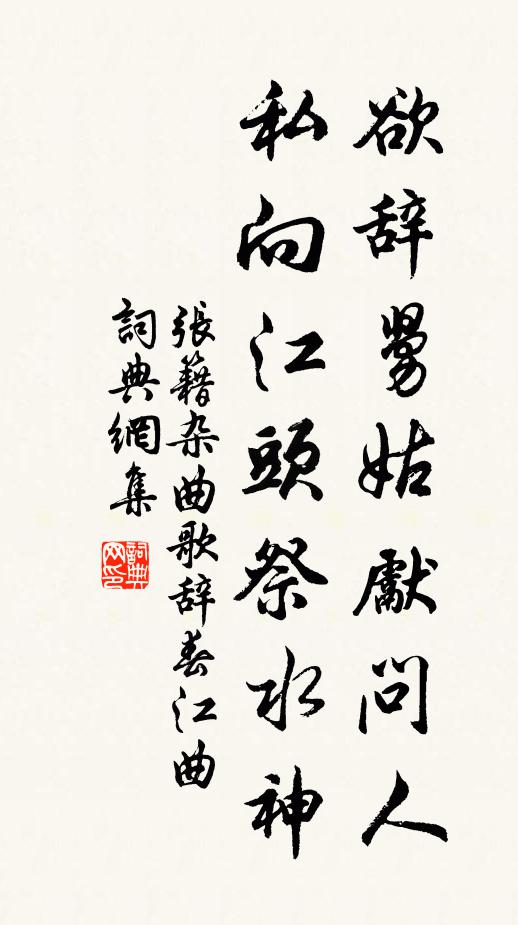 欲辞舅姑獻問人
私向江頭祭水神
張籍杂曲歌辞春江曲
詞典網集
詞典
网印